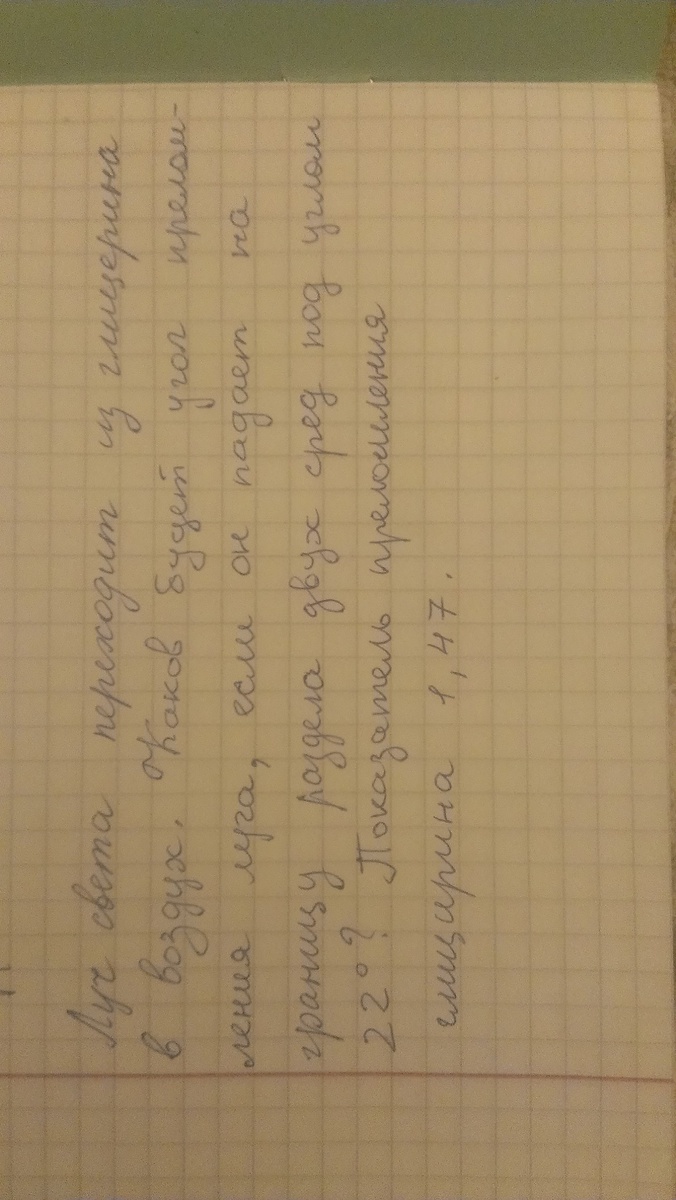 Луч света переходит из глицерина
в воздух. Каков будет угол прелом-
ления луча, если он падает на
границу раздела двух сред под углом
22°? Показатель преломления
глицирина 1,47.